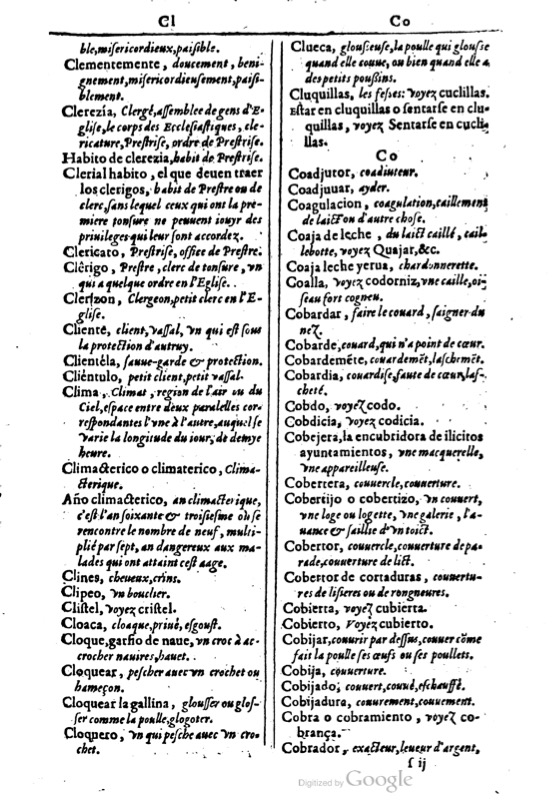 Cl
ble,misericordieux,paisible.
Clementemente, doucement, beni-
gnement,misericordieusement,paisi-
blement.
Clerezía, Clergé,assemblee de gens d'E-
glise,le corps des Ecclesiastiques, cle-
ricature,Prestrise, ordre de Prestrise.
Habito de clerezia,habit de Prestrise.
Clerial habito, el que deuen traer
los clerigos, habit de Prestre ou de
clerc,sans lequel ceux qui ont la pre-
miere tonsure ne peuuent iouyr des
priuileges qui leur sont accordez.
Clericato, Prestrise, office de Prestre.
Clérigo, Prestre, clerc de tonsure, vn
qui a quelque ordre en l'Eglise.
Clerizon, Clergeon,petit clerc en l'E-
glise.
Cliente, client, vassal, vn qui est sous
la protection d'autruy.
Clientéla, sauue-garde & protection.
Cliéntulo, petit client,petit vassal.
Clima, Climat, region de l'air ou du
Ciel,espace entre deux paralelles cor-
respondantes l'vne à l'autre,auquel se
varie la longitude du iour, de demye
heure.
Climacterico o climaterico, Clima-
cterique.
Año climacterico, an climacterique,
c'est l'an soixante & troisiesme où se
rencontre le nombre de neuf, multi-
plié par sept, an dangereux aux ma-
lades qui ont attaint cest aage.
Clines, cheueux,crins.
Clipeo, vn bouclier.
Clistel, voyez cristel.
Cloaca, cloaque,priué, esgoust.
Cloque,garfio de naue, vn croc à ac-
crocher nauires,hauet.
Cloquear, pescher auec vn crochet ou
hameçon.
Cloquear la gallina, glousser ou glos-
ser comme la poulle,glogoter.
Cloquero, vn qui pesche auec vn cro-
chet.
Co
Clueca, glousseuse,la poulle qui glousse
quand elle couue, ou bien quand elle a
des petits poussins.
Cluquillas, les fesses: voyez cuclillas.
Estar en cluquillas o sentarse en clu-
quillas, voyez Sentarse en cucli-
llas.
Co
Coadjutor, coadiuteur.
Coadjuuar, ayder.
Coagulacion, coagulation,caillement
de laict ou d'autre chose.
Coaja de leche, du laict caillé, cail-
lebotte, voyez Quajar,&c.
Coaja leche yerua, chardonnerette.
Coalla, voyez codorniz,vne caille, oi-
seau fort cogneu.
Cobardar, faire le couard, saigner du
nez.
Cobarde,couard,qui n'a point de cœur.
Cobardeméte, couardemēt,laschemēt.
Cobardia, couardise,faute de cœur,las-
cheté.
Cobdo, voyez codo.
Cobdicia, voyez codicia.
Cobejera,la encubridora de ilicitos
ayuntamientos, vne macquerelle,
vne appareilleuse.
Cobertera, couuercle,couuerture.
Cobertijo o cobertizo, vn couuert,
vne loge ou logette, vne galerie, l'a-
uance & saillie d'vn toict.
Cobertor, couuercle,couuerture de pa-
rade,couuerture de lict.
Cobertor de cortaduras, couuertu-
res de lisieres ou de rongneures.
Cobierta, voyez cubierta.
Cobierto, Voyez cubierto.
Cobijar,couurir par dessus,couuer cōme
fait la poulle ses œufs ou ses poullets.
Cobija, couuerture.
Cobijado, couuert, couué,eschauffé.
Cobijadura, couurement,couuement.
Cobra o cobramiento, voyez co-
brança.
Cobrador, exacteur,leueur d'argent,
s ij
Digitized by Google